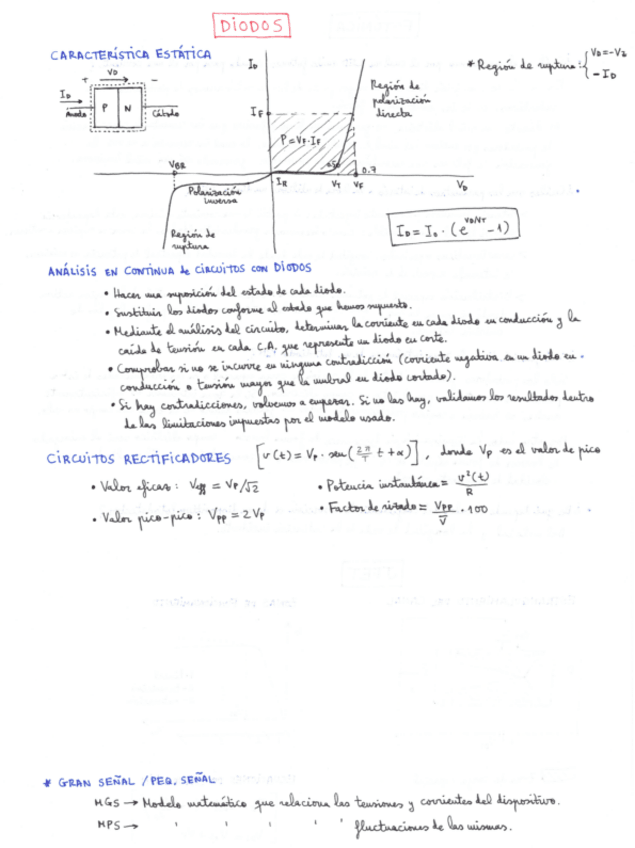 DIODOS
CARACTERÍSTICA ESTÁTICA
+ VD −
ID
Ánodo P N Cátodo
ID
IF
P = VF · IF
Región de
polarización
directa
* Región de ruptura: { VD = -VZ
- ID
VBR
IR
VT VF
0.7
VD
Polarización
inversa
Región de
ruptura
ID = IS · (e^VD/VT - 1)
ANÁLISIS EN CONTINUA de CIRCUITOS CON DIODOS
• Hacer una suposición del estado de cada diodo.
• Sustituir los diodos conforme al estado que hemos supuesto.
• Mediante el análisis del circuito, determinar la corriente en cada diodo en conducción y la
caída de tensión en cada C.A. que represente un diodo en corte.
• Comprobar si no se incurre en ninguna contradicción (corriente negativa en un diodo en
conducción o tensión mayor que la umbral en diodo cortado).
• Si hay contradicciones, volvemos a empezar. Si no las hay, validamos los resultados dentro
de las limitaciones impuestas por el modelo usado.
CIRCUITOS RECTIFICADORES [v(t) = VP · sen(2π/T t + α)], donde VP es el valor de pico
• Valor eficaz: Veff = VP/√2
• Potencia instantánea = v²(t)/R
• Valor pico-pico: VPP = 2VP
• Factor de rizado = VPP/V̅ · 100
* GRAN SEÑAL / PEQ. SEÑAL
MGS → Modelo matemático que relaciona las tensiones y corrientes del dispositivo.
MPS → ' ' ' ' ' ' fluctuaciones de las mismas.